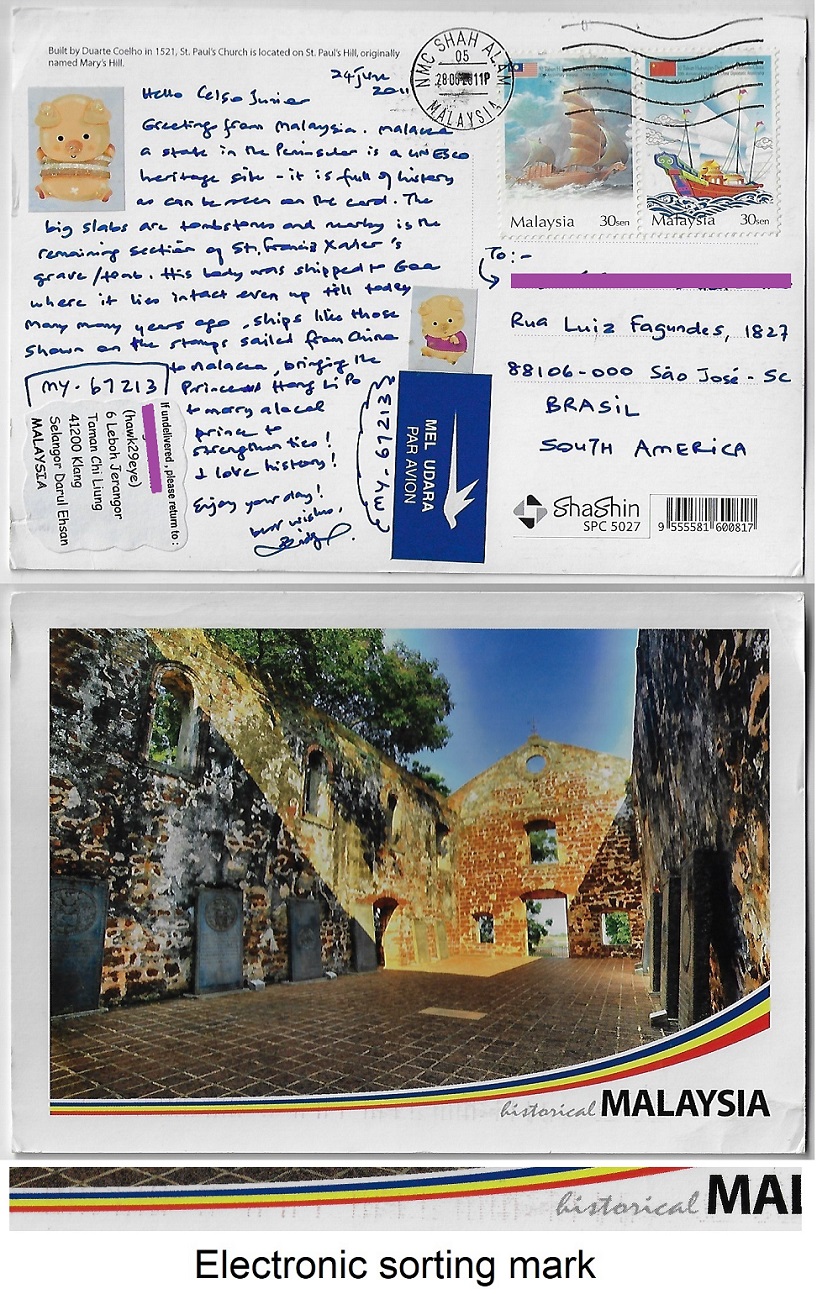 Built by Duarte Coelho in 1521, St. Paul's Church is located on St. Paul's Hill, originally
named Mary's Hill.
24 June
2011
Hello Celso Junior
Greetings from Malaysia. Malacca
a state in the Peninsular is a UNESCO
heritage site - it is full of history
as can be seen on the card. The
big slabs are tombstones and nearby is the
remaining section of St. Francis Xavier's
grave/tomb. His body was shipped to Goa
where it lies intact even up till today
Many many years ago, ships like those
shown on the stamps sailed from China
to Malacca, bringing the
Princess Hang Li Po
to marry a local
prince to
strengthen ties!
I love history!
Enjoy your day!
best wishes,
MY-67213
MY-67213
If undelivered, please return to:
(hawk29eye)
6 Leboh Jerangor
Taman Chi Liung
41200 Klang
Selangor Darul Ehsan
MALAYSIA
MEL UDARA
PAR AVION
NMC SHAH ALAM
05
MALAYSIA
Malaysia 30sen
Malaysia 30sen
To:-
Rua Luiz Fagundes, 1827
88106-000 São José - SC
BRASIL
SOUTH AMERICA
ShaShin
SPC 5027
9 555581 600817
historical MALAYSIA
historical MAL
Electronic sorting mark